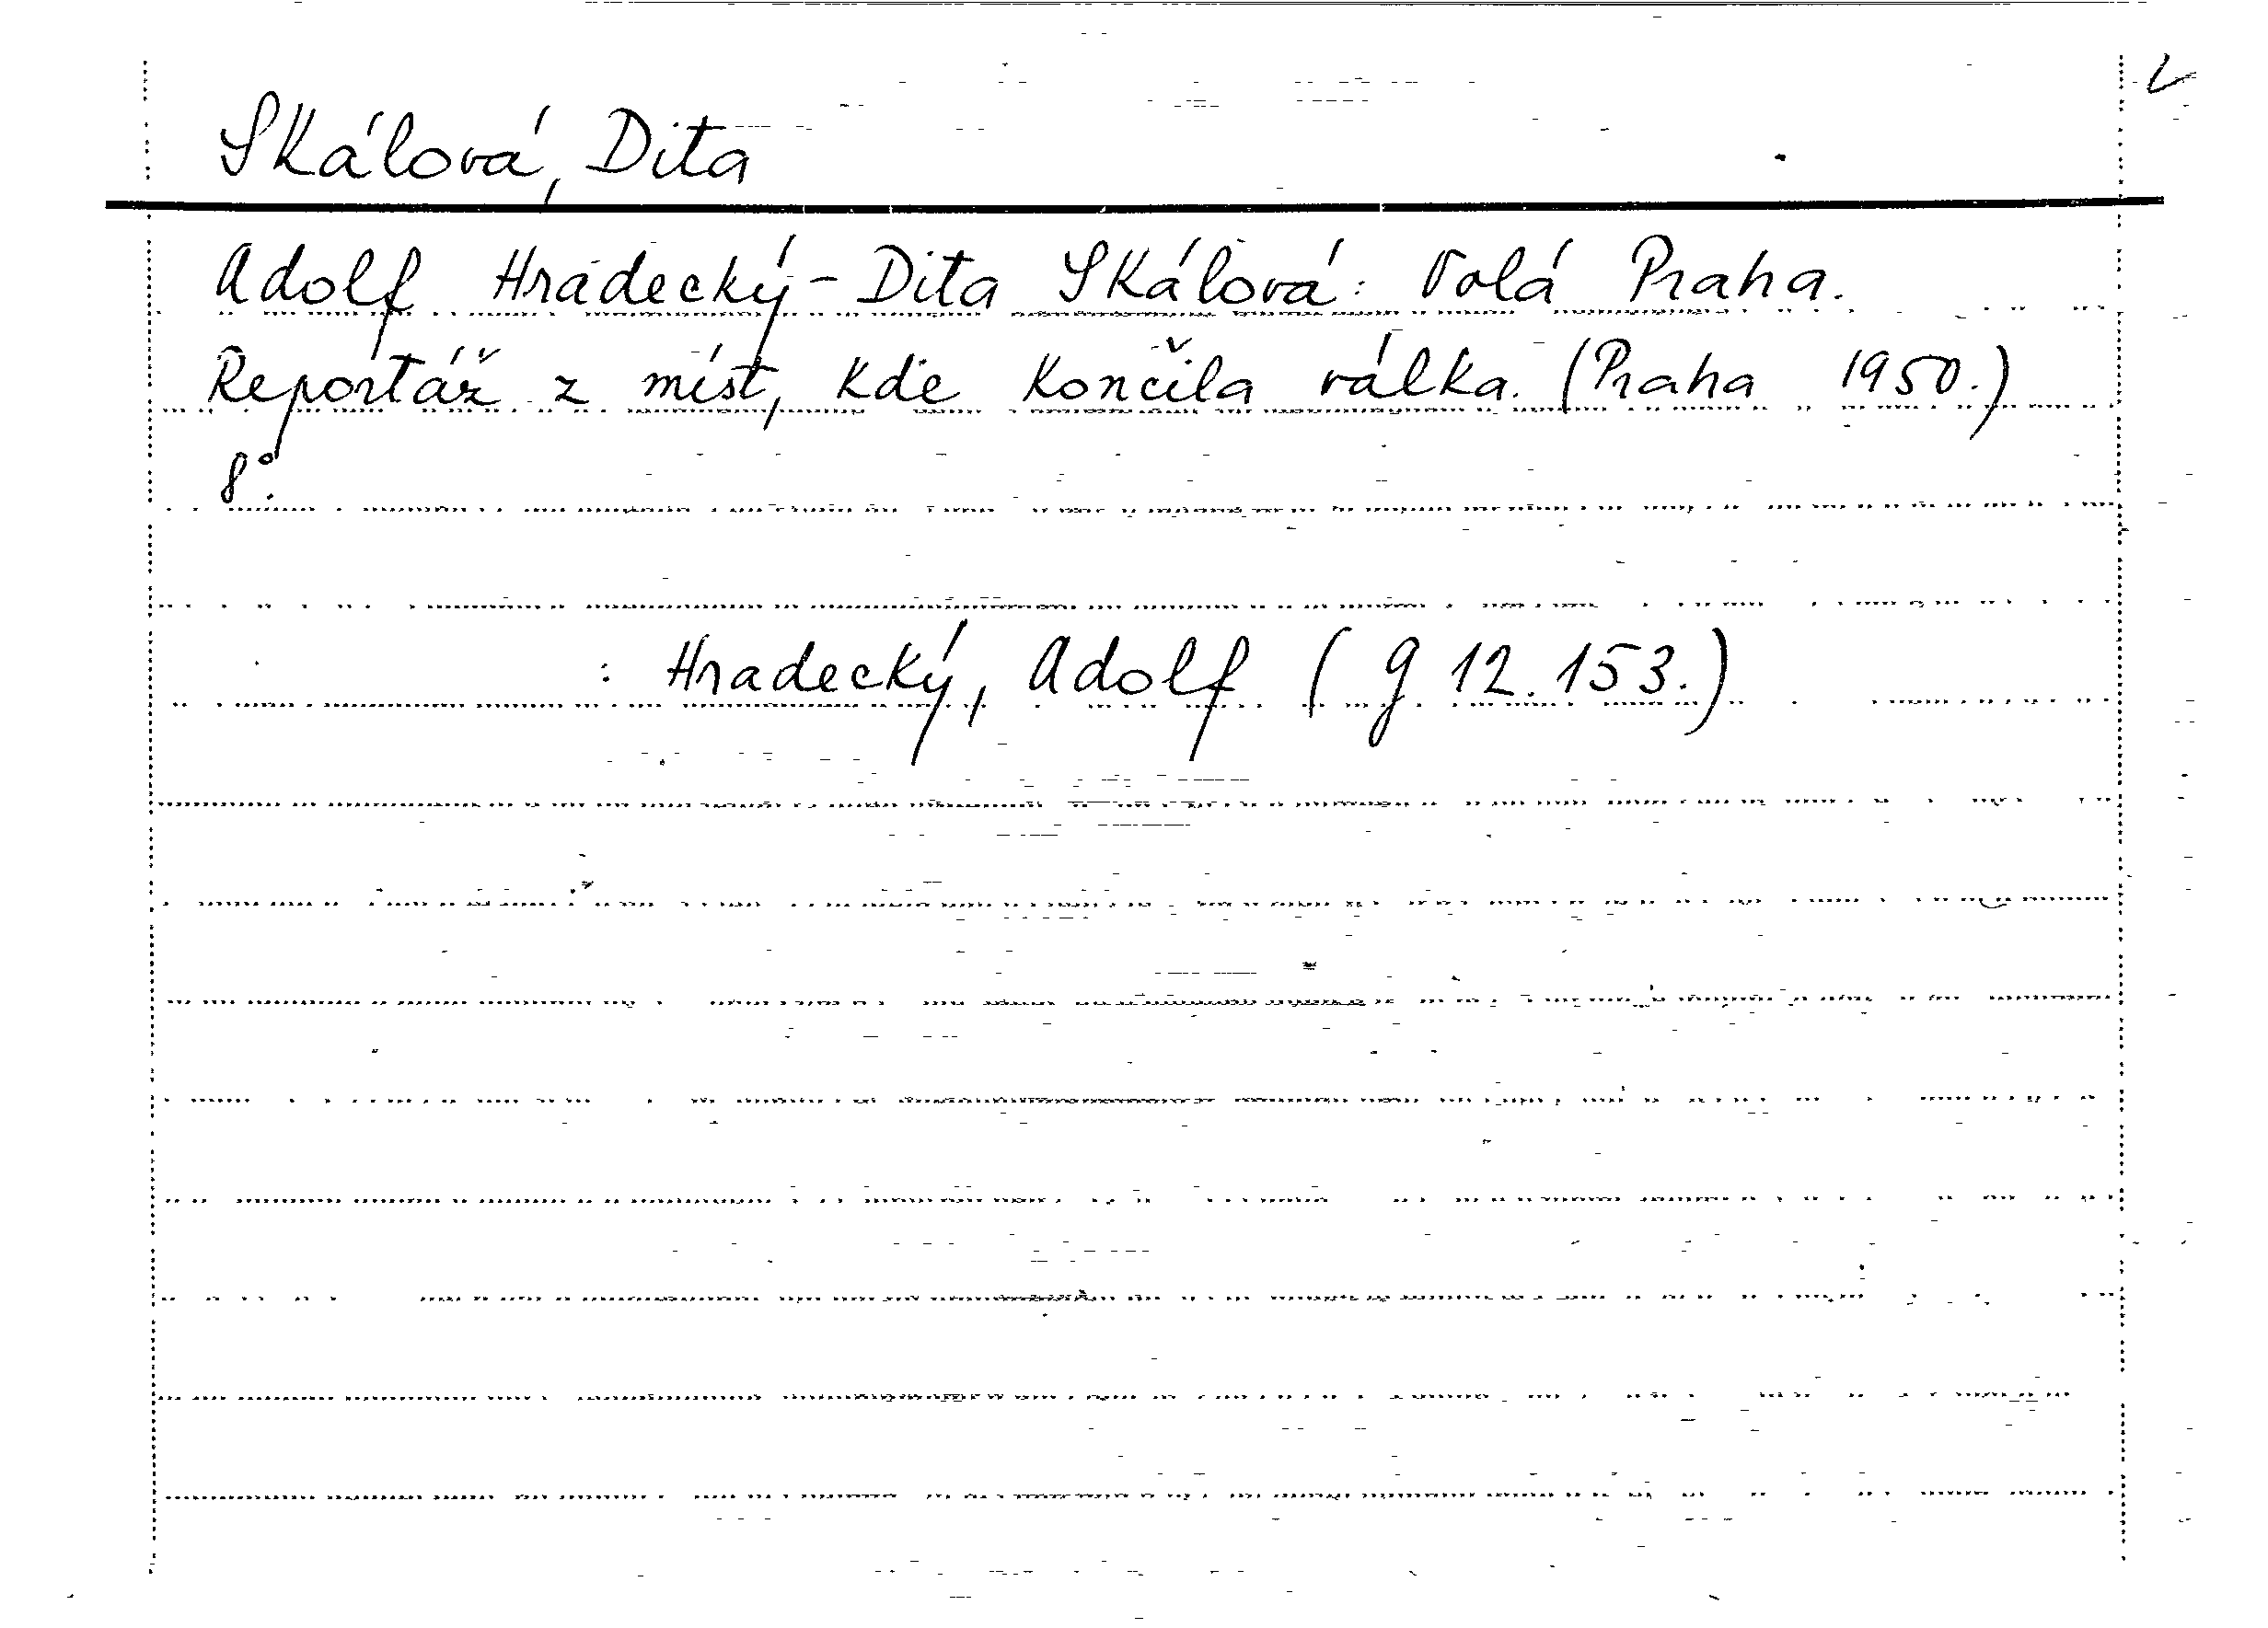 Skálová, Dita
Adolf Hradecký - Dita Skálová: Volá Praha.
Reportáž z míst, kde končila válka. (Praha 1950.)
8°.
: Hradecký, Adolf (g 12.153.)